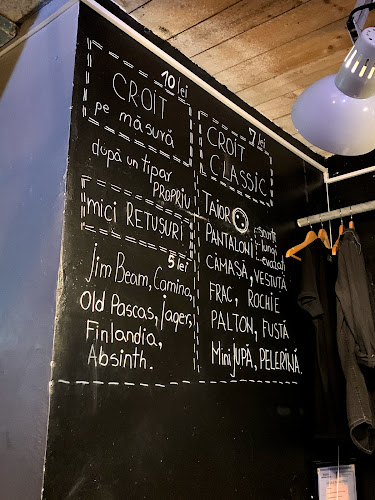 10 lei
CROIT
pe măsură
după un tipar
PROPRIU
mici RETUSURI
5 lei
Jim Beam, Camino,
Old Pascas, jager,
Finlandia,
Absinth.
7 lei
CROIT
CLASSIC
TAIOR
PANTALONI
- scurți
- lungi
- evazați
CĂMAȘĂ, VESTUȚĂ
FRAC, ROCHIE
PALTON, FUSTĂ
Mini JUPĂ, PELERINĂ.